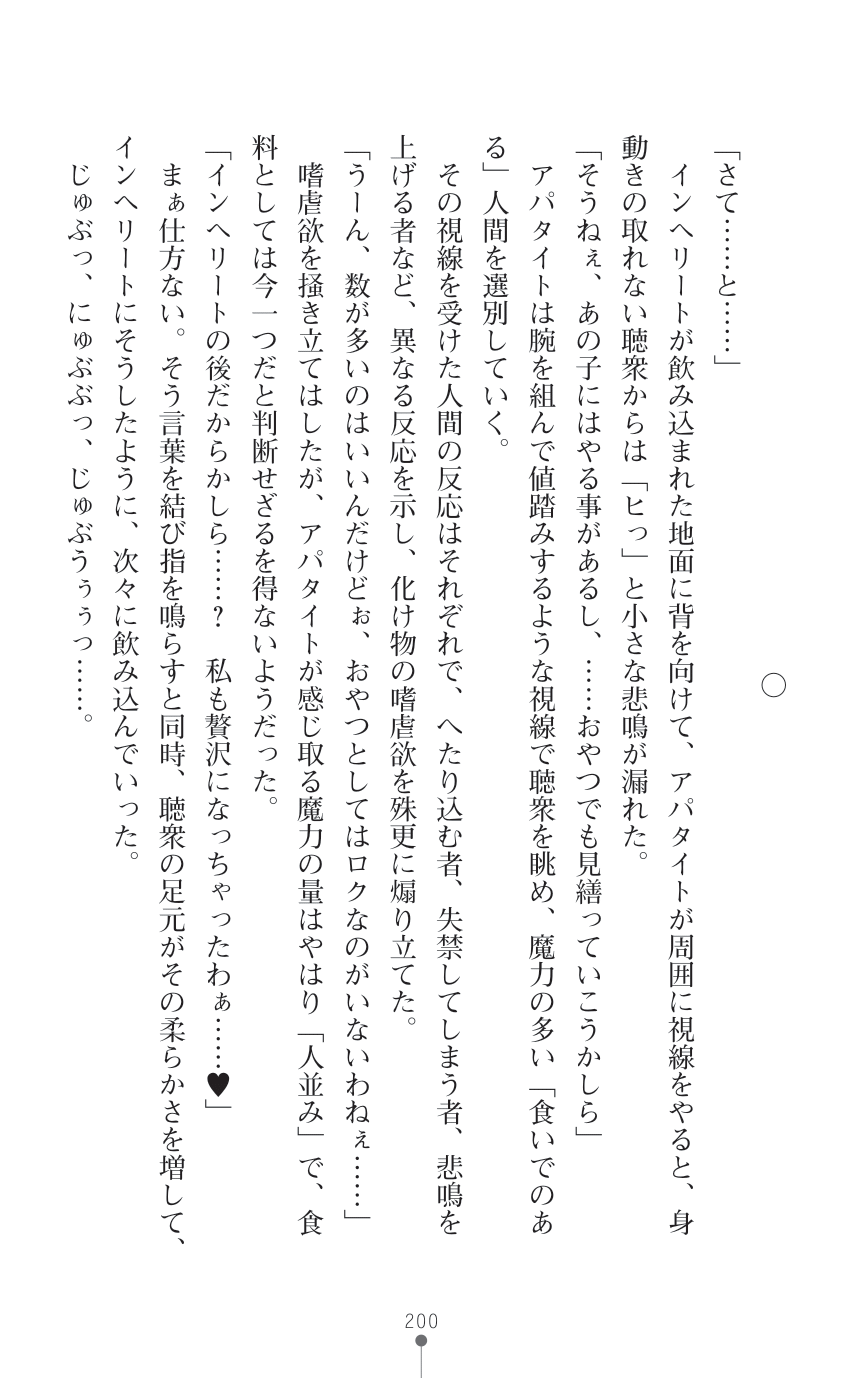 ○
「さて……と……」
　インヘリートが飲み込まれた地面に背を向けて、アパタイトが周囲に視線をやると、身
動きの取れない聴衆からは「ヒっ」と小さな悲鳴が漏れた。
「そうねぇ、あの子にはやる事があるし、……おやつでも見繕っていこうかしら」
　アパタイトは腕を組んで値踏みするような視線で聴衆を眺め、魔力の多い「食いでのあ
る」人間を選別していく。
　その視線を受けた人間の反応はそれぞれで、へたり込む者、失禁してしまう者、悲鳴を
上げる者など、異なる反応を示し、化け物の嗜虐欲を殊更に煽り立てた。
「うーん、数が多いのはいいんだけどぉ、おやつとしてはロクなのがいないわねぇ……」
　嗜虐欲を掻き立てはしたが、アパタイトが感じ取る魔力の量はやはり「人並み」で、食
料としては今一つだと判断せざるを得ないようだった。
「インヘリートの後だからかしら……?　私も贅沢になっちゃったわぁ……♥」
　まぁ仕方ない。そう言葉を結び指を鳴らすと同時、聴衆の足元がその柔らかさを増して、
インヘリートにそうしたように、次々に飲み込んでいった。
　じゅぶっ、にゅぶぶっ、じゅぶうぅぅっ……。
200